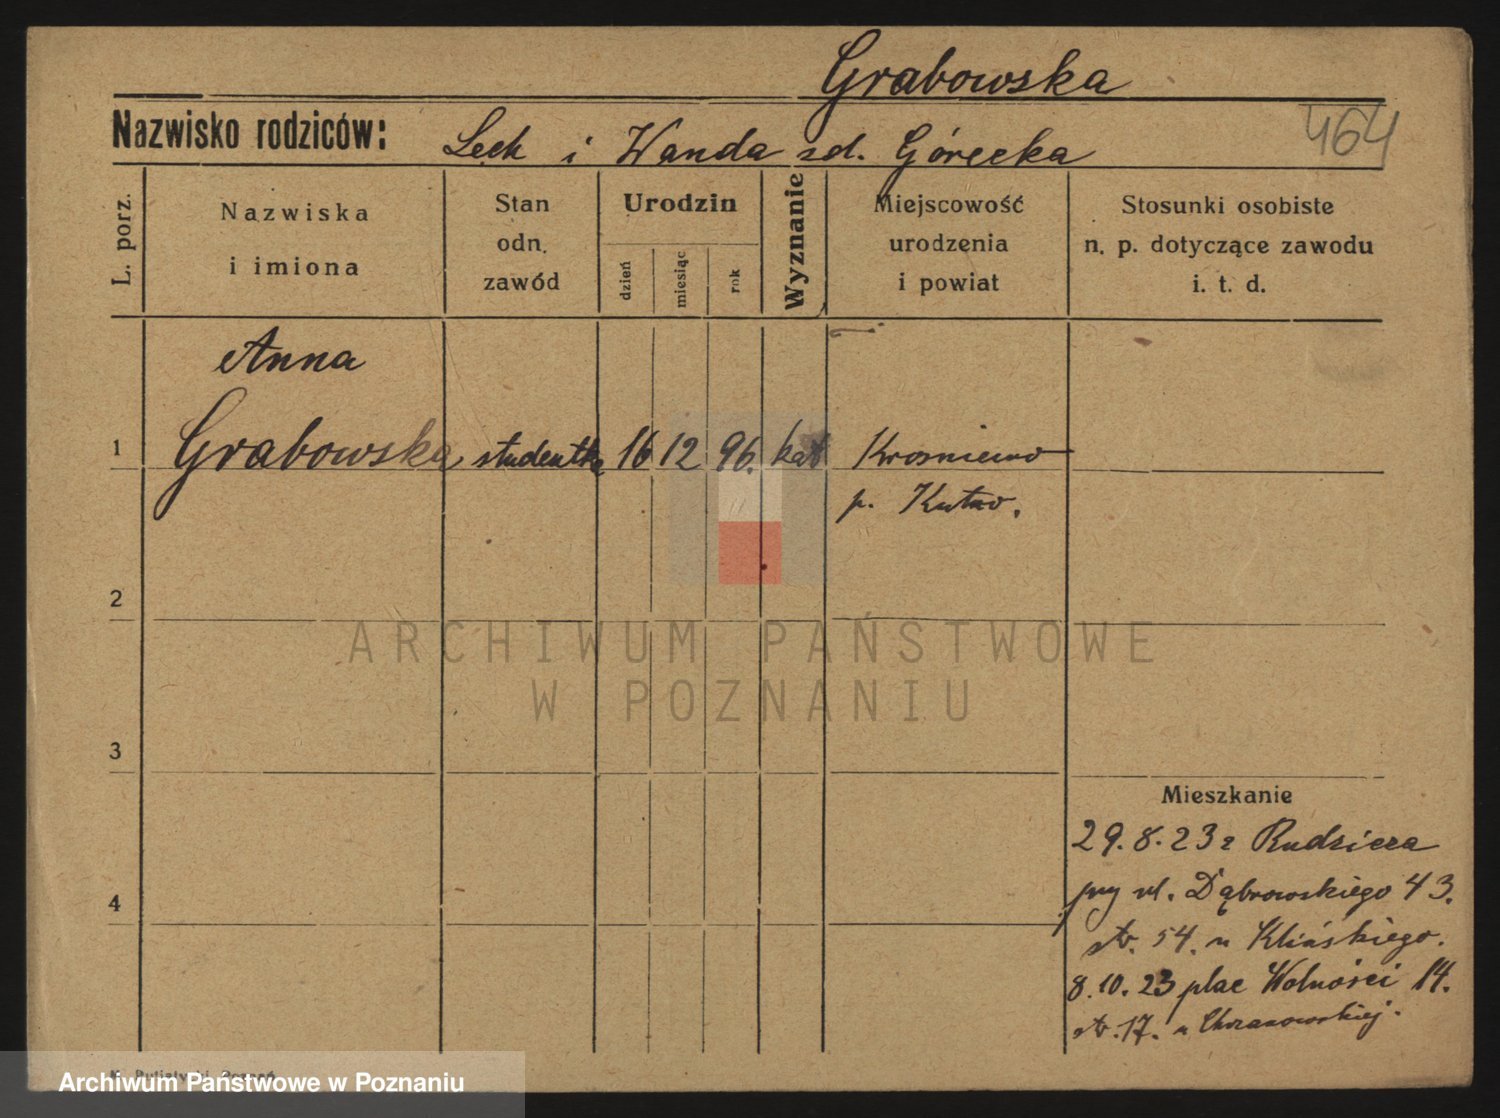 Grabowska
464
Nazwisko rodziców: Lech i Wanda zd. Górecka
L. porz.
Nazwiska
i imiona
Stan
odn.
zawód
Urodzin
dzień
miesiąc
rok
Wyznanie
Miejscowość
urodzenia
i powiat
Stosunki osobiste
n. p. dotyczące zawodu
i. t. d.
Anna
1 Grabowska studentka 16 12 96. kat Krosniewo
p. Kutno.
2
ARCHIWUM PAŃSTWOWE
W POZNANIU
3
Mieszkanie
29.8.23 z Rudzicza
przy ul. Dąbrowskiego 43.
4
str. 54. u Klińskiego.
8.10.23 plac Wolności 14.
str. 17. u Chrzanowskiej.
Putiatycki, Poznań
Archiwum Państwowe w Poznaniu